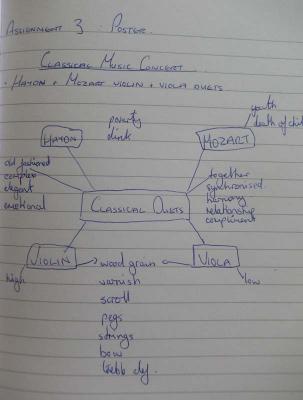 ASSIGNMENT 3 : POSTER
CLASSICAL MUSIC CONCERT
· HAYDN + MOZART VIOLIN + VIOLA DUETS
youth
death of child
poverty
drink
HAYDN
MOZART
old fashioned
complex
elegant
emotional
together
synchronised
harmony
relationship
compliment
CLASSICAL DUETS
VIOLIN
VIOLA
high
low
wood grain
varnish
scroll
pegs
strings
bow
clef.